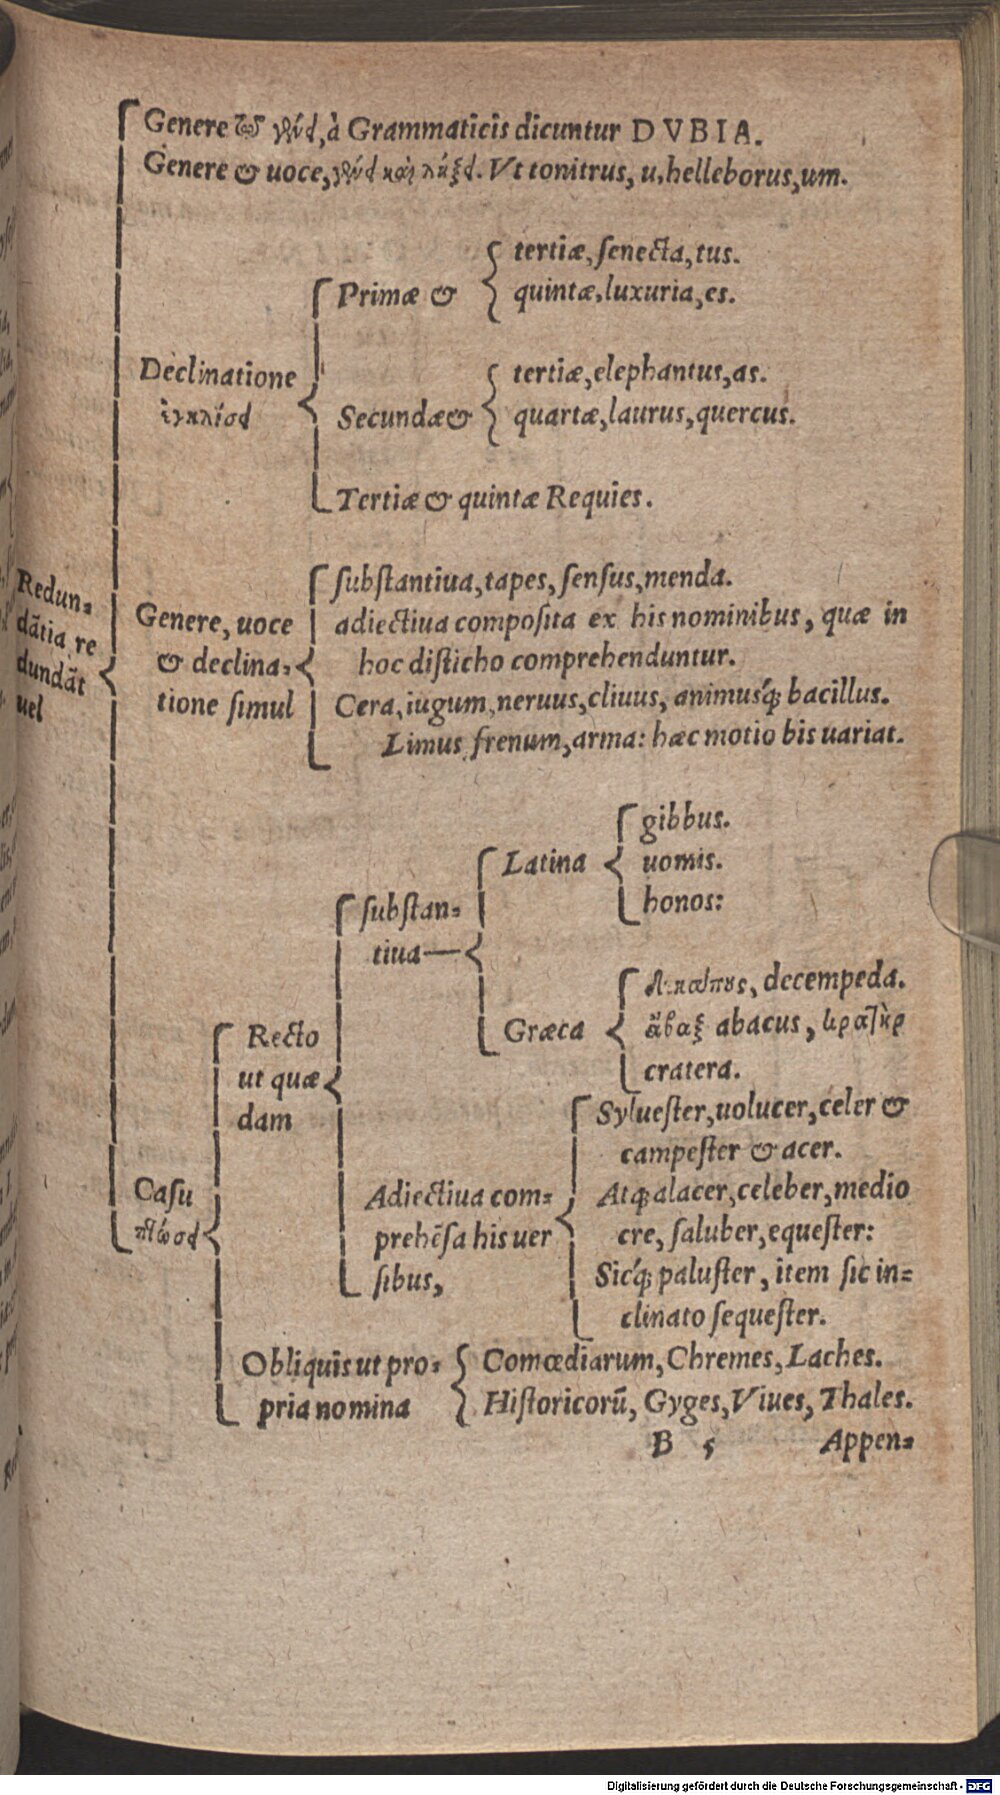 Genere τῷ γένει, à Grammaticis dicuntur DVBIA.
Genere & uoce, γένει καὶ λέξει. Vt tonitrus, u, helleborus, um.
Redun=
dātia re
dundāt
uel
Declinatione
ἐγκλίσει
Primæ &
tertiæ, ſenecta, tus.
quintæ, luxuria, es.
Secundæ &
tertiæ, elephantus, as.
quartæ, laurus, quercus.
Tertiæ & quintæ Requies.
Genere, uoce
& declina=
tione ſimul
ſubſtantiua, tapes, ſenſus, menda.
adiectiua compoſita ex his nominibus, quæ in
hoc diſticho comprehenduntur.
Cera, iugum, neruus, cliuus, animusq́ue bacillus.
Limus frenum, arma: hæc motio bis uariat.
Caſu
πτώσει
Recto
ut quæ
dam
ſubſtan=
tiua
Latina
gibbus.
uomis.
honos:
Græca
δεκάπους, decempeda.
ἄβαξ abacus, κρατὴρ
cratera.
Adiectiua com=
prehēſa his uer
ſibus,
Sylueſter, uolucer, celer &
campeſter & acer.
Atq; alacer, celeber, medio
cre, ſaluber, equeſter:
Sicq́; paluſter, item ſic in=
clinato ſequeſter.
Obliquis ut pro=
pria nomina
Comœdiarum, Chremes, Laches.
Hiſtoricorū, Gyges, Viues, Thales.
B 5 Appen=
Digitalisierung gefördert durch die Deutsche Forschungsgemeinschaft - DFG